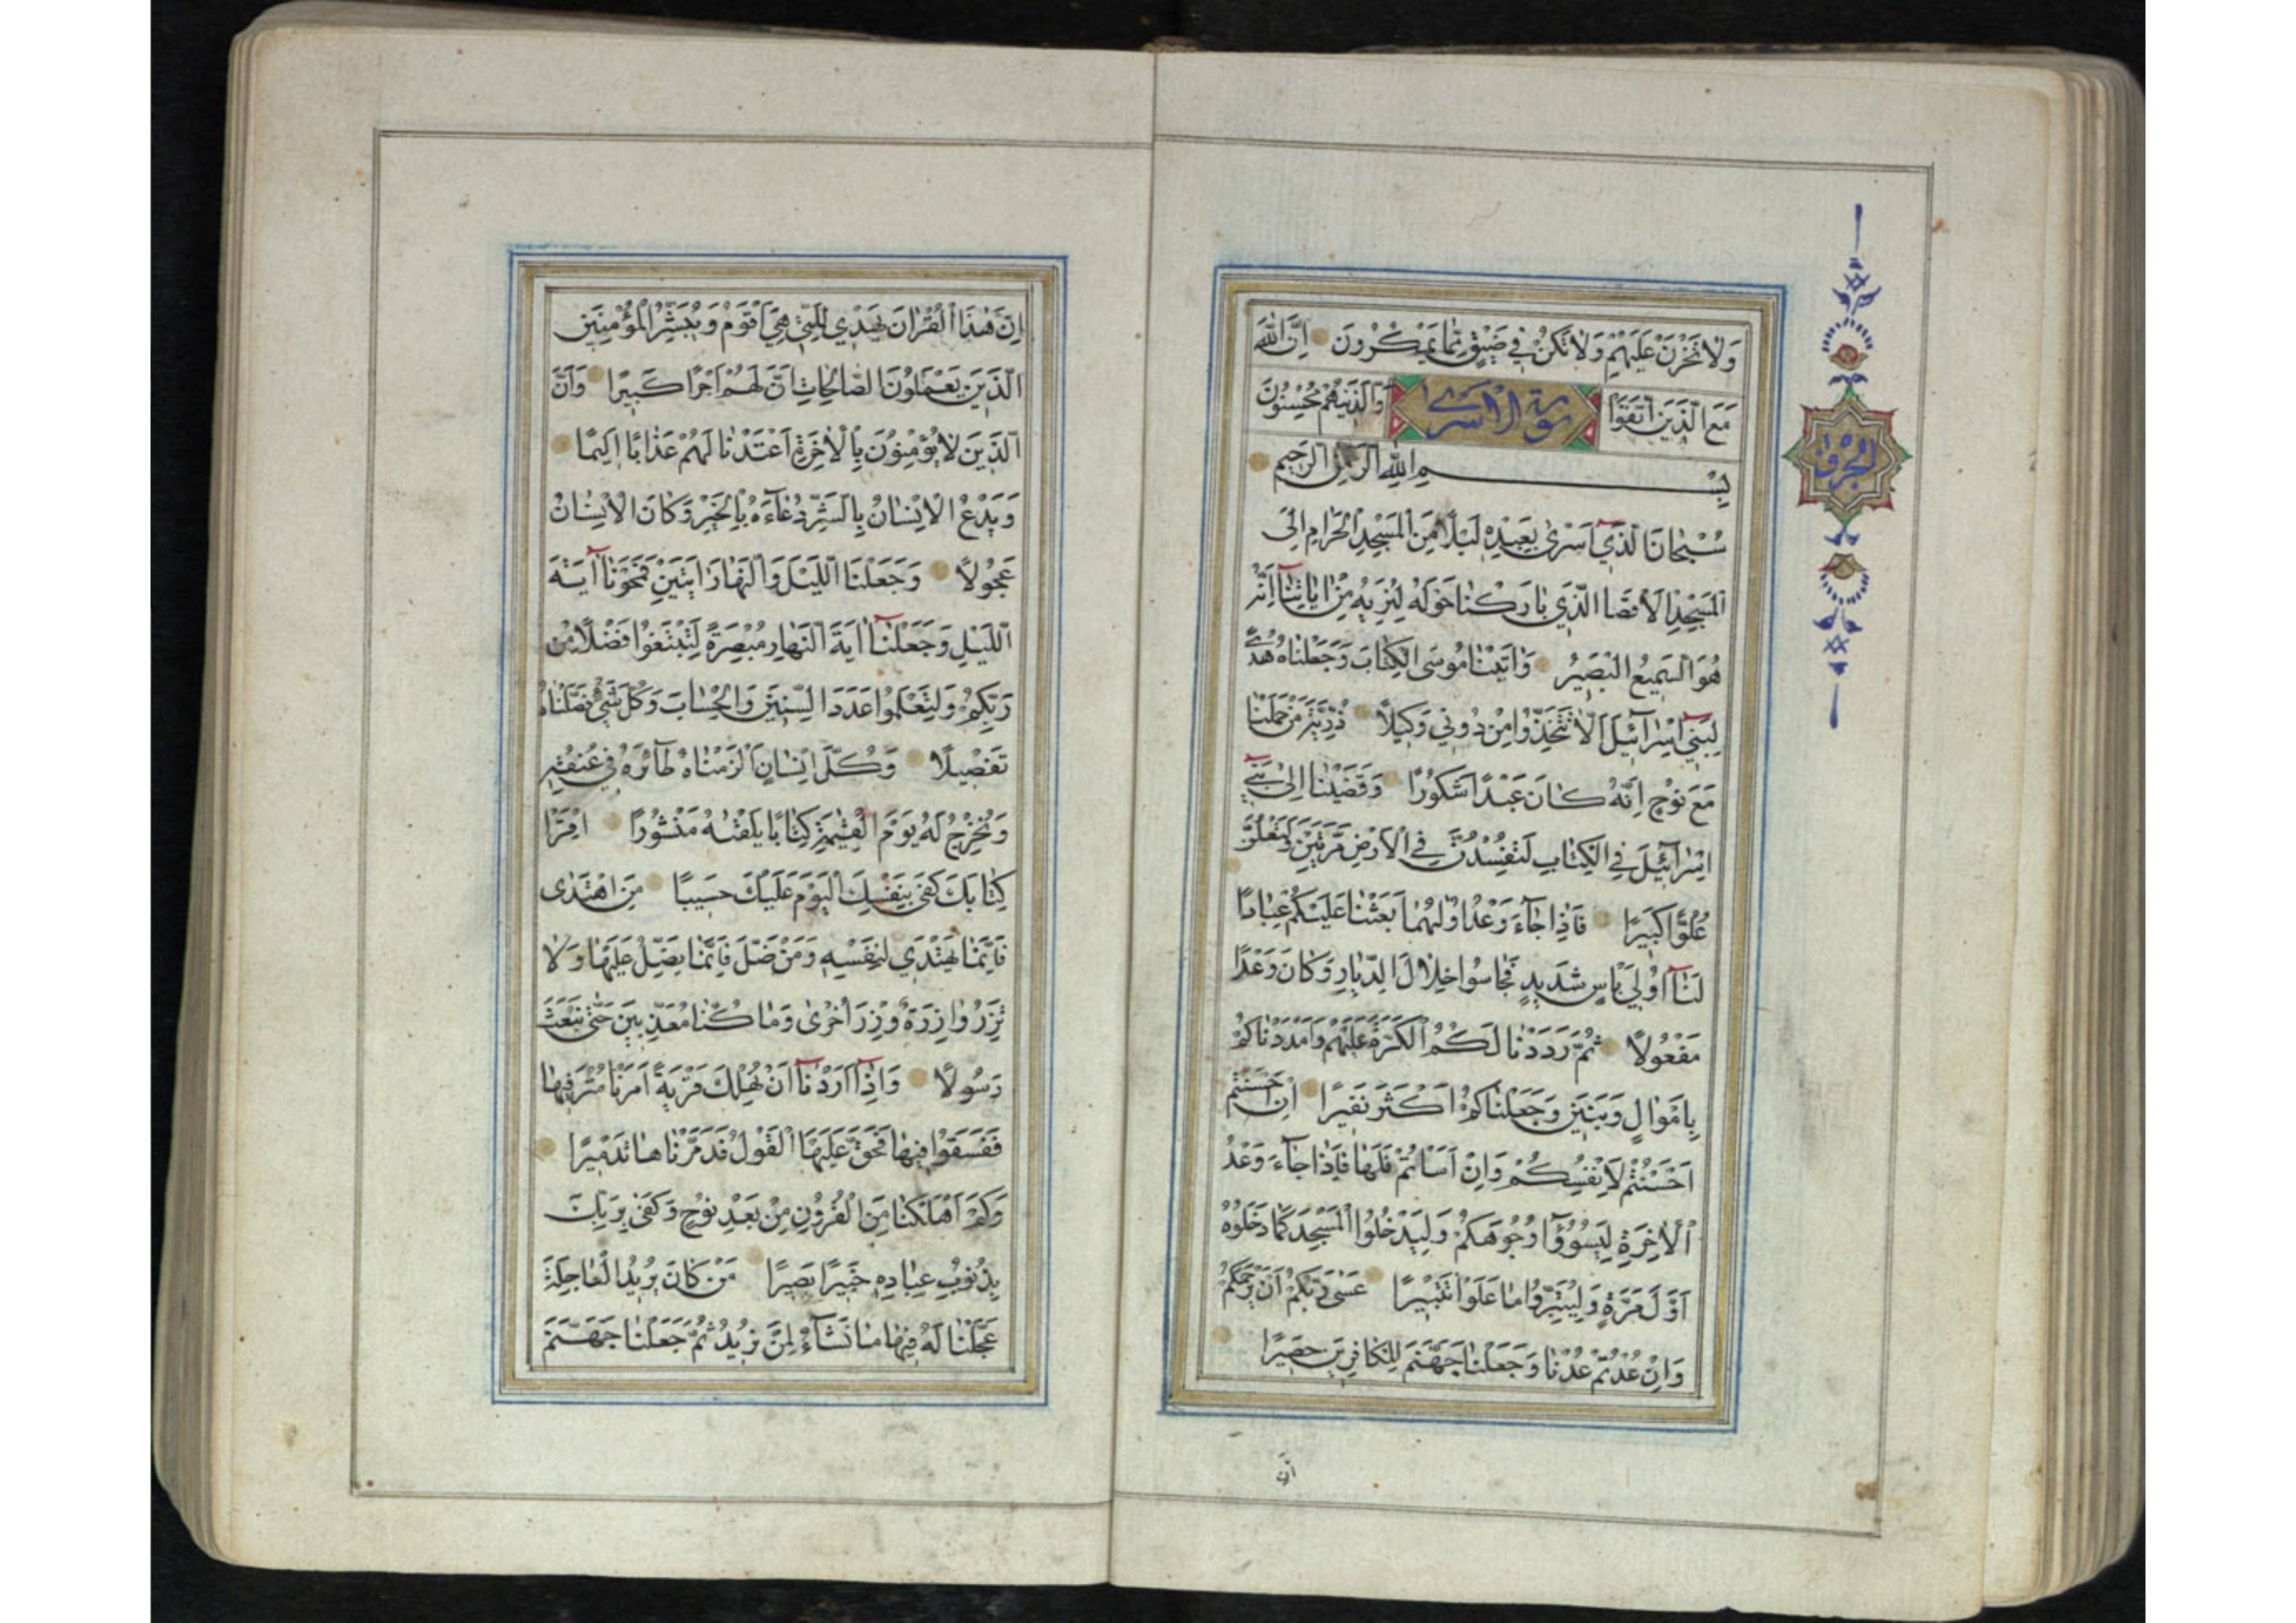 وَلَا تَحْزَنْ عَلَيْهِمْ وَلَا تَكُنْ فِي ضَيْقٍ مِمَّا يَمْكُرُونَ اِنَّ اللّٰهَ
مَعَ الَّذِينَ اتَّقَوْا وَالَّذِينَ هُمْ مُحْسِنُونَ
سورة الاسرى
بِسْمِ اللهِ الرَّحْمٰنِ الرَّحِيمِ
سُبْحَانَ الَّذِي اَسْرٰى بِعَبْدِهِ لَيْلًا مِنَ الْمَسْجِدِ الْحَرَامِ اِلَى
الْمَسْجِدِ الْاَقْصَا الَّذِي بَارَكْنَا حَوْلَهُ لِنُرِيَهُ مِنْ اٰيَاتِنَا اِنَّهُ
هُوَ السَّمِيعُ الْبَصِيرُ وَاٰتَيْنَا مُوسَى الْكِتَابَ وَجَعَلْنَاهُ هُدًى
لِبَنِي اِسْرَآئِيلَ اَلَّا تَتَّخِذُوا مِنْ دُونِي وَكِيلًا ذُرِّيَّةَ مَنْ حَمَلْنَا
مَعَ نُوحٍ اِنَّهُ كَانَ عَبْدًا شَكُورًا وَقَضَيْنَا اِلٰى بَنِي
اِسْرَآئِيلَ فِي الْكِتَابِ لَتُفْسِدُنَّ فِي الْاَرْضِ مَرَّتَيْنِ وَلَتَعْلُنَّ
عُلُوًّا كَبِيرًا فَاِذَا جَآءَ وَعْدُ اُولٰهُمَا بَعَثْنَا عَلَيْكُمْ عِبَادًا
لَنَا اُولِي بَأْسٍ شَدِيدٍ فَجَاسُوا خِلَالَ الدِّيَارِ وَكَانَ وَعْدًا
مَفْعُولًا ثُمَّ رَدَدْنَا لَكُمُ الْكَرَّةَ عَلَيْهِمْ وَاَمْدَدْنَاكُمْ
بِاَمْوَالٍ وَبَنِينَ وَجَعَلْنَاكُمْ اَكْثَرَ نَفِيرًا اِنْ اَحْسَنْتُمْ
اَحْسَنْتُمْ لِاَنْفُسِكُمْ وَاِنْ اَسَأْتُمْ فَلَهَا فَاِذَا جَآءَ وَعْدُ
الْاٰخِرَةِ لِيَسُوؤُا وُجُوهَكُمْ وَلِيَدْخُلُوا الْمَسْجِدَ كَمَا دَخَلُوهُ
اَوَّلَ مَرَّةٍ وَلِيُتَبِّرُوا مَا عَلَوْا تَتْبِيرًا عَسٰى رَبُّكُمْ اَنْ يَرْحَمَكُمْ
وَاِنْ عُدْتُمْ عُدْنَا وَجَعَلْنَا جَهَنَّمَ لِلْكَافِرِينَ حَصِيرًا
ان
اِنَّ هٰذَا الْقُرْاٰنَ يَهْدِي لِلَّتِي هِيَ اَقْوَمُ وَيُبَشِّرُ الْمُؤْمِنِينَ
الَّذِينَ يَعْمَلُونَ الصَّالِحَاتِ اَنَّ لَهُمْ اَجْرًا كَبِيرًا وَاَنَّ
الَّذِينَ لَا يُؤْمِنُونَ بِالْاٰخِرَةِ اَعْتَدْنَا لَهُمْ عَذَابًا اَلِيمًا
وَيَدْعُ الْاِنْسَانُ بِالشَّرِّ دُعَآءَهُ بِالْخَيْرِ وَكَانَ الْاِنْسَانُ
عَجُولًا وَجَعَلْنَا اللَّيْلَ وَالنَّهَارَ اٰيَتَيْنِ فَمَحَوْنَا اٰيَةَ
اللَّيْلِ وَجَعَلْنَا اٰيَةَ النَّهَارِ مُبْصِرَةً لِتَبْتَغُوا فَضْلًا مِنْ
رَبِّكُمْ وَلِتَعْلَمُوا عَدَدَ السِّنِينَ وَالْحِسَابَ وَكُلَّ شَيْءٍ فَصَّلْنَاهُ
تَفْصِيلًا وَكُلَّ اِنْسَانٍ اَلْزَمْنَاهُ طَآئِرَهُ فِي عُنُقِهِ
وَنُخْرِجُ لَهُ يَوْمَ الْقِيٰمَةِ كِتَابًا يَلْقٰيهُ مَنْشُورًا اِقْرَأْ
كِتَابَكَ كَفٰى بِنَفْسِكَ الْيَوْمَ عَلَيْكَ حَسِيبًا مَنِ اهْتَدٰى
فَاِنَّمَا يَهْتَدِي لِنَفْسِهِ وَمَنْ ضَلَّ فَاِنَّمَا يَضِلُّ عَلَيْهَا وَلَا
تَزِرُ وَازِرَةٌ وِزْرَ اُخْرٰى وَمَا كُنَّا مُعَذِّبِينَ حَتّٰى نَبْعَثَ
رَسُولًا وَاِذَا اَرَدْنَا اَنْ نُهْلِكَ قَرْيَةً اَمَرْنَا مُتْرَفِيهَا
فَفَسَقُوا فِيهَا فَحَقَّ عَلَيْهَا الْقَوْلُ فَدَمَّرْنَاهَا تَدْمِيرًا
وَكَمْ اَهْلَكْنَا مِنَ الْقُرُونِ مِنْ بَعْدِ نُوحٍ وَكَفٰى بِرَبِّكَ
بِذُنُوبِ عِبَادِهِ خَبِيرًا بَصِيرًا مَنْ كَانَ يُرِيدُ الْعَاجِلَةَ
عَجَّلْنَا لَهُ فِيهَا مَا نَشَآءُ لِمَنْ نُرِيدُ ثُمَّ جَعَلْنَا لَهُ جَهَنَّمَ